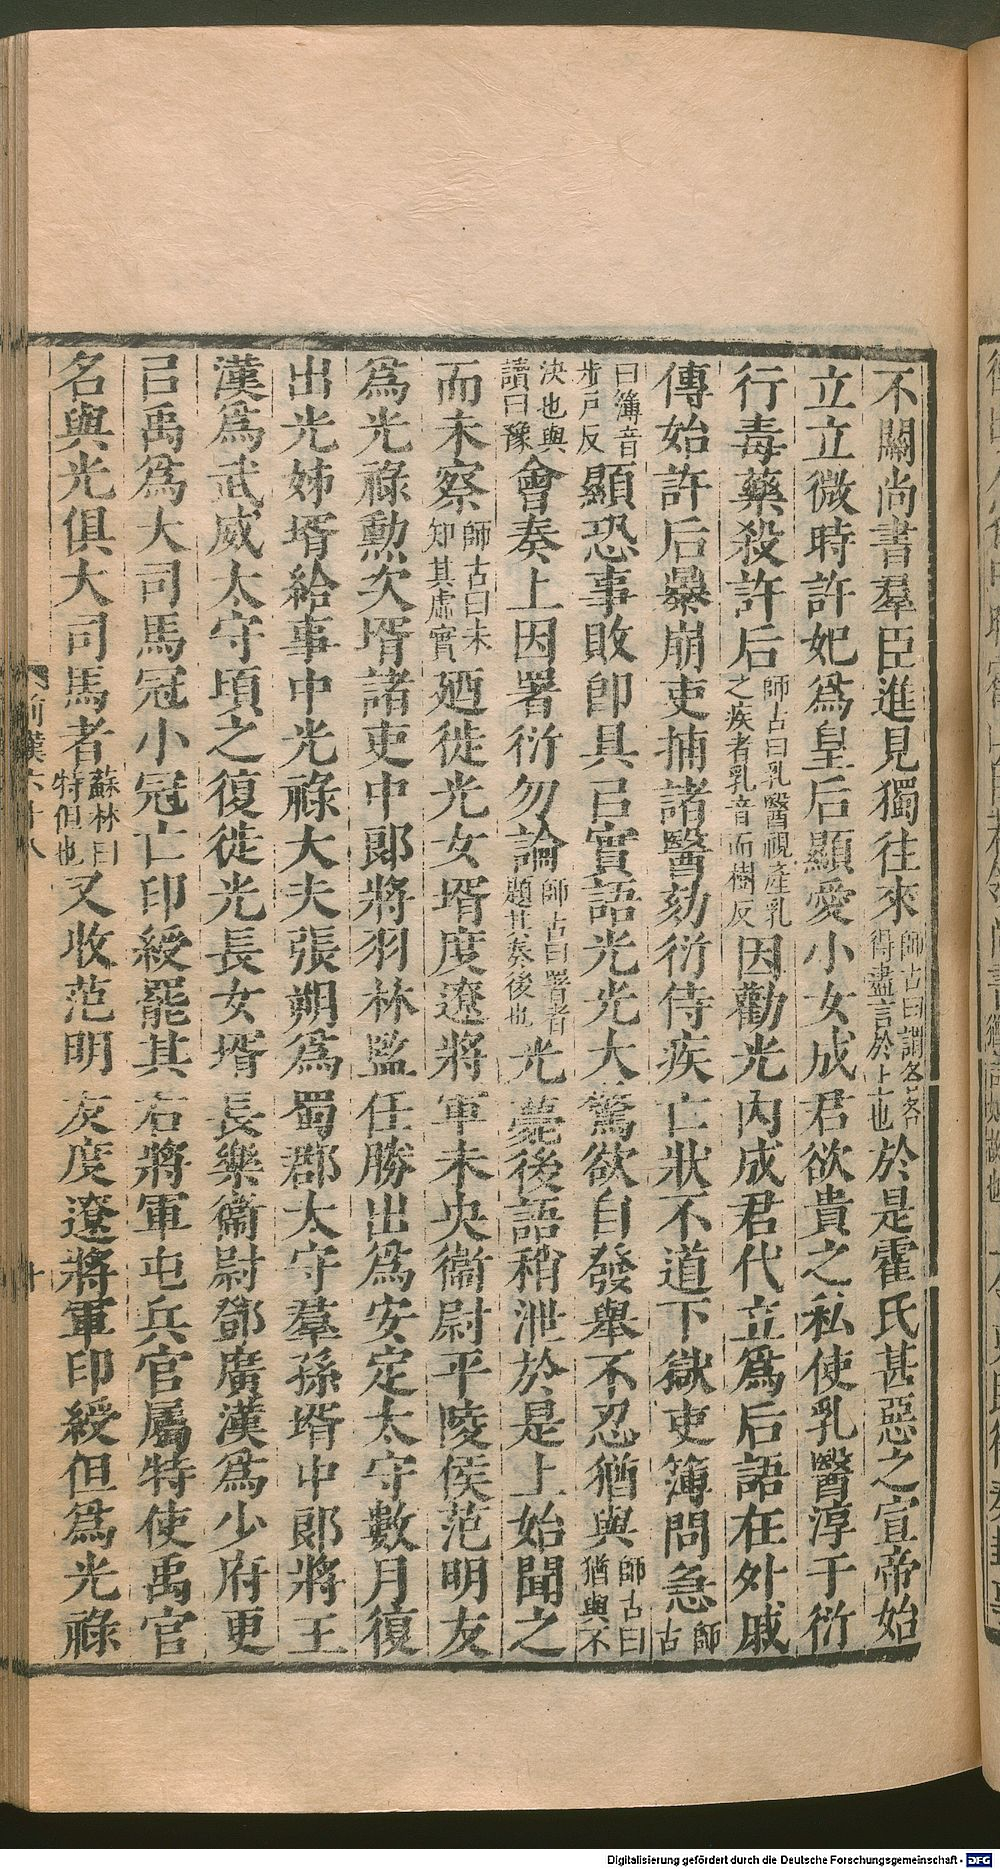 不關尚書羣臣進見獨往來師古曰謂各各得盡言於上也於是霍氏甚惡之宣帝始
立立微時許妃爲皇后顯愛小女成君欲貴之私使乳醫淳于衍
行毒藥殺許后師古曰乳醫視產乳之疾者乳音而樹反因勸光內成君代立爲后語在外戚
傳始許后暴崩吏捕諸醫劾衍侍疾亡狀不道下獄吏簿問急師古
曰簿音步戶反顯恐事敗卽具㠯實語光光大驚欲自發舉不忍猶與師古曰猶與不
決也與讀曰豫會奏上因署衍勿論師古曰署者題其奏後也光薨後語稍泄於是上始聞之
而未察師古曰未知其虛實廼徙光女壻度遼將軍未央衞尉平陵侯范明友
爲光祿勲次壻諸吏中郞將羽林監任勝出爲安定太守數月復
出光姊壻給事中光祿大夫張朔爲蜀郡太守羣孫壻中郞將王
漢爲武威太守頃之復徙光長女壻長樂衞尉鄧廣漢爲少府更
㠯禹爲大司馬冠小冠亡印綬罷其右將軍屯兵官屬特使禹官
名與光俱大司馬者蘇林曰特但也又收范明友度遼將軍印綬但爲光祿
前漢六十八
十
Digitalisierung gefördert durch die Deutsche Forschungsgemeinschaft - DFG